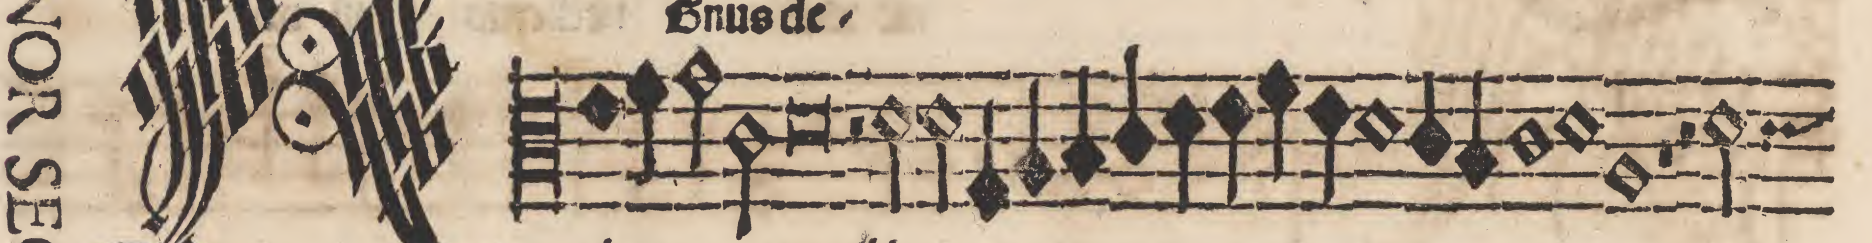 NOR SEC
Gnus de